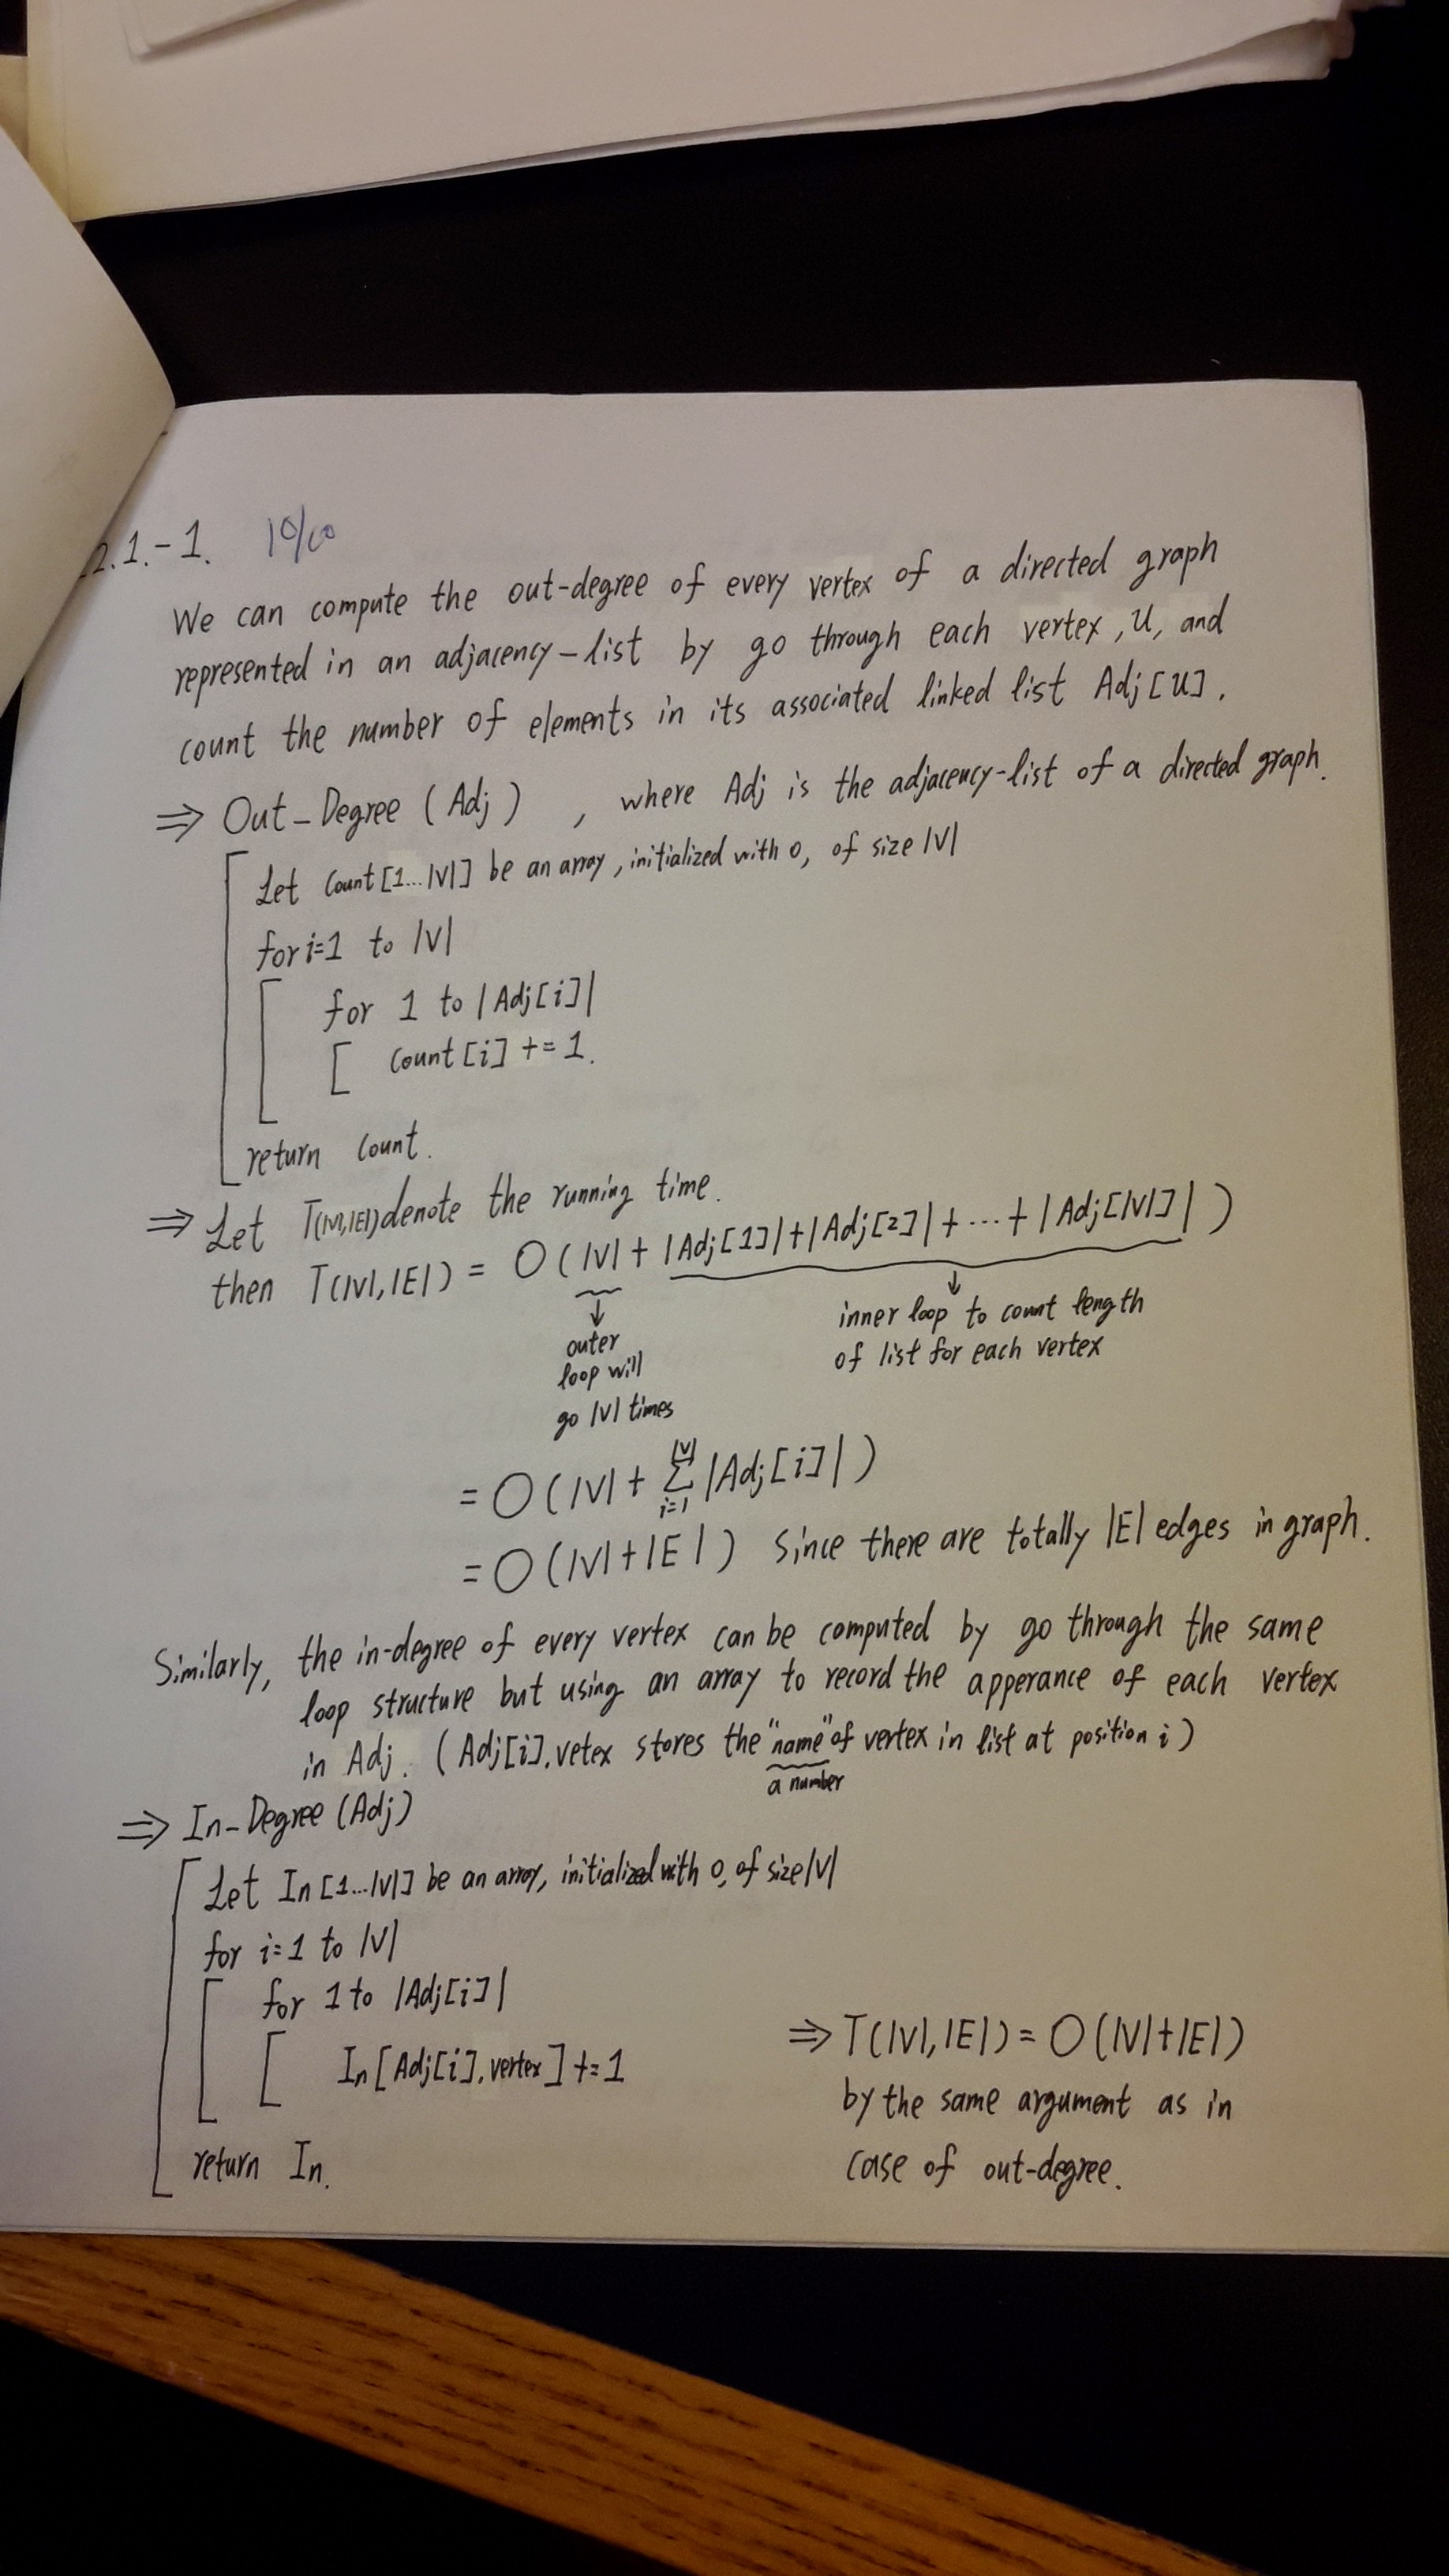 2.1.-1. 10/10
We can compute the out-degree of every vertex of a directed graph
represented in an adjacency-list by go through each vertex, u, and
count the number of elements in its associated linked list Adj[u].
⇒ Out-Degree (Adj) , where Adj is the adjacency-list of a directed graph.
Let Count[1...|V|] be an array, initialized with 0, of size |V|
for i=1 to |V|
for 1 to |Adj[i]|
Count[i] += 1.
return Count.
⇒ Let T(|V|,|E|) denote the running time.
then T(|V|,|E|) = O(|V| + |Adj[1]|+|Adj[2]|+...+|Adj[|V|]|)
outer
loop will
go |V| times
inner loop to count length
of list for each vertex
= O(|V| + Σ_{i=1}^{|V|} |Adj[i]|)
= O(|V|+|E|) Since there are totally |E| edges in graph.
Similarly, the in-degree of every vertex can be computed by go through the same
loop structure but using an array to record the apperance of each vertex
in Adj. (Adj[i].vetex stores the "name" of vertex in list at position i)
a number
⇒ In-Degree (Adj)
Let In[1...|V|] be an array, initialized with 0, of size |V|
for i=1 to |V|
for 1 to |Adj[i]|
In[Adj[i].vertex] += 1
return In.
⇒ T(|V|,|E|) = O(|V|+|E|)
by the same argument as in
case of out-degree.